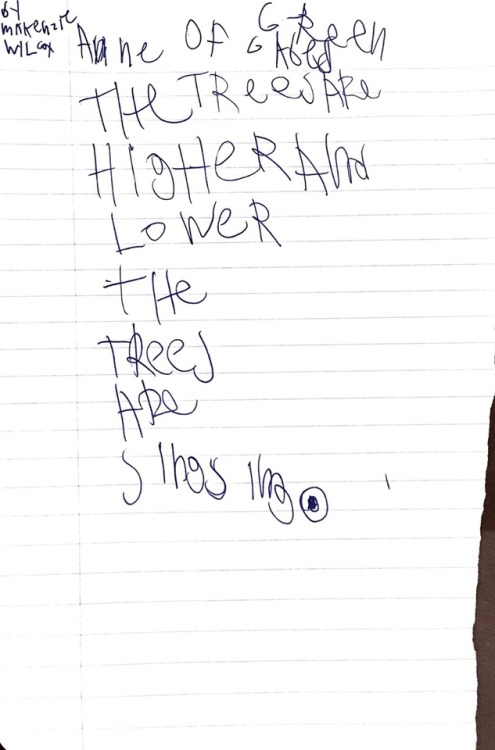 by
makenzie
WILcox
Anne OF Green
Gables
THe TReesARe
HigHeR And
LoWeR
THe
TRees
ARe
singsing.